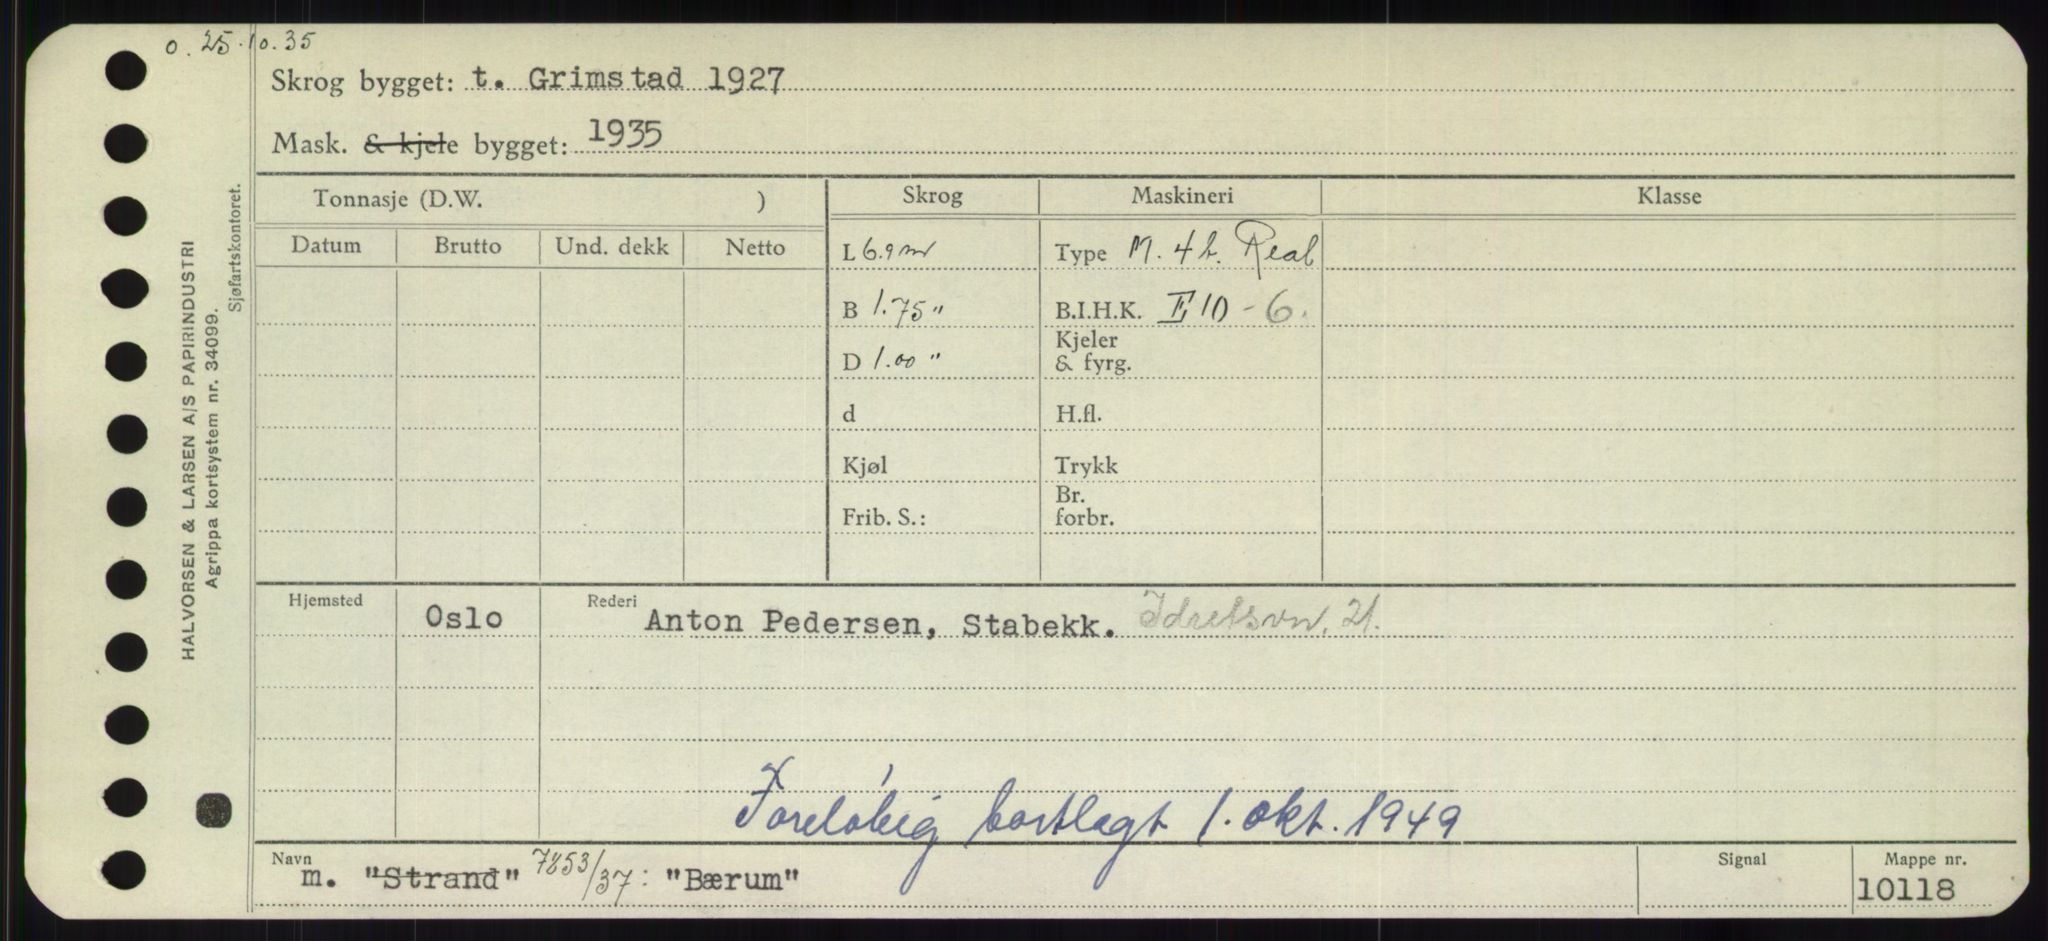 o. 25.10.35
Skrog bygget: t. Grimstad 1927
Mask. & kjele bygget: 1935
Tonnasje (D.W. )
Skrog
Maskineri
Klasse
Datum
Brutto
Und. dekk
Netto
L 6.9 m
Type M. 4 t. Real
B 1.75 "
B.I.H.K. E 10 - 6.
D 1.00 "
Kjeler
& fyrg.
d
H.fl.
Kjøl
Trykk
Frib. S.:
Br.
forbr.
Hjemsted
Oslo
Rederi
Anton Pedersen, Stabekk. Idretsvn. 21.
Foreløbig bortlagt 1. okt. 1949
Navn
m. "Strand" 7253/37: "Bærum"
Signal
Mappe nr.
10118
HALVORSEN & LARSEN A/S PAPIRINDUSTRI
Agrippa kortsystem nr. 34099.
Sjøfartskontoret.